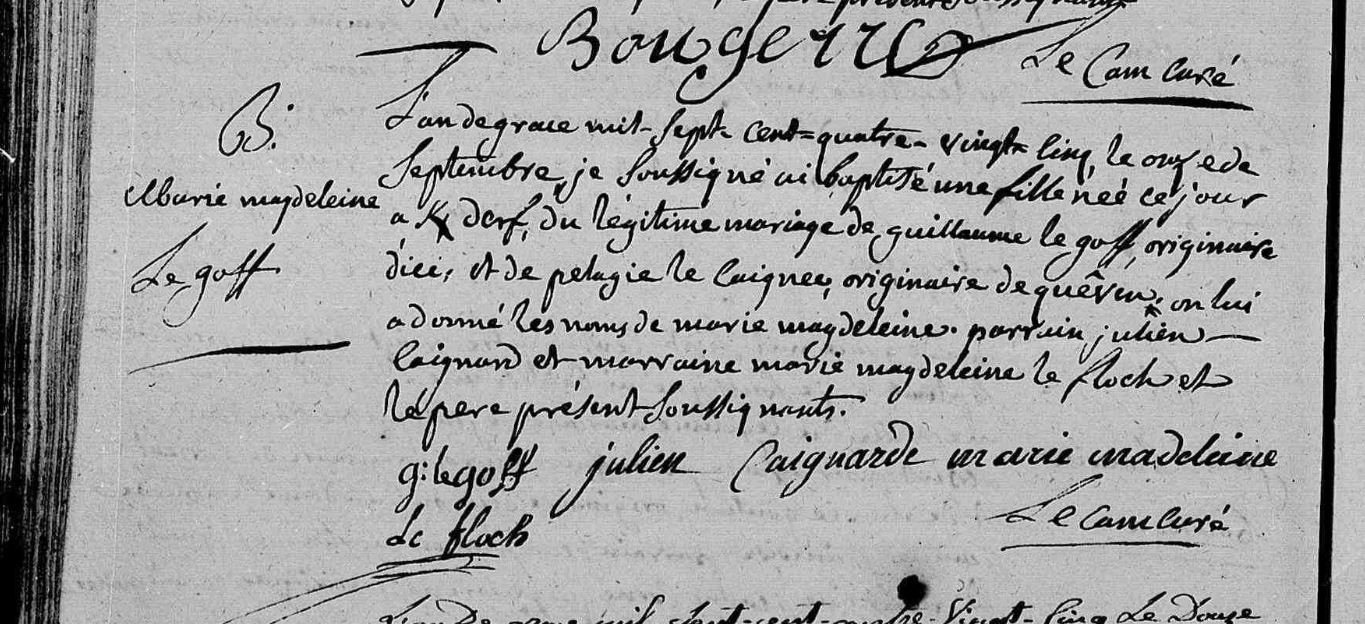 Bougerie
Le Cam curé
B.
Marie magdeleine
Le goff
L'an de grace mil-sept-cent-quatre-vingt-cinq, le onze de
Septembre, je soussigné ai baptisé une fille néé ce jour
a derf, du légitime mariage de guillaume le goff, originaire
d'ici, et de pelagie le Caignec, originaire de quêven, on lui
a donné les noms de marie magdeleine. parrain, julien
Caignard et marraine marie magdeleine le floch et
le pere présent soussignants.
g: le goff julien Caignarde marie madeleine
Le floch
Le cam curé
L'an De grace mil sept-cent-quatre-Vingt-Cinq Le Douze